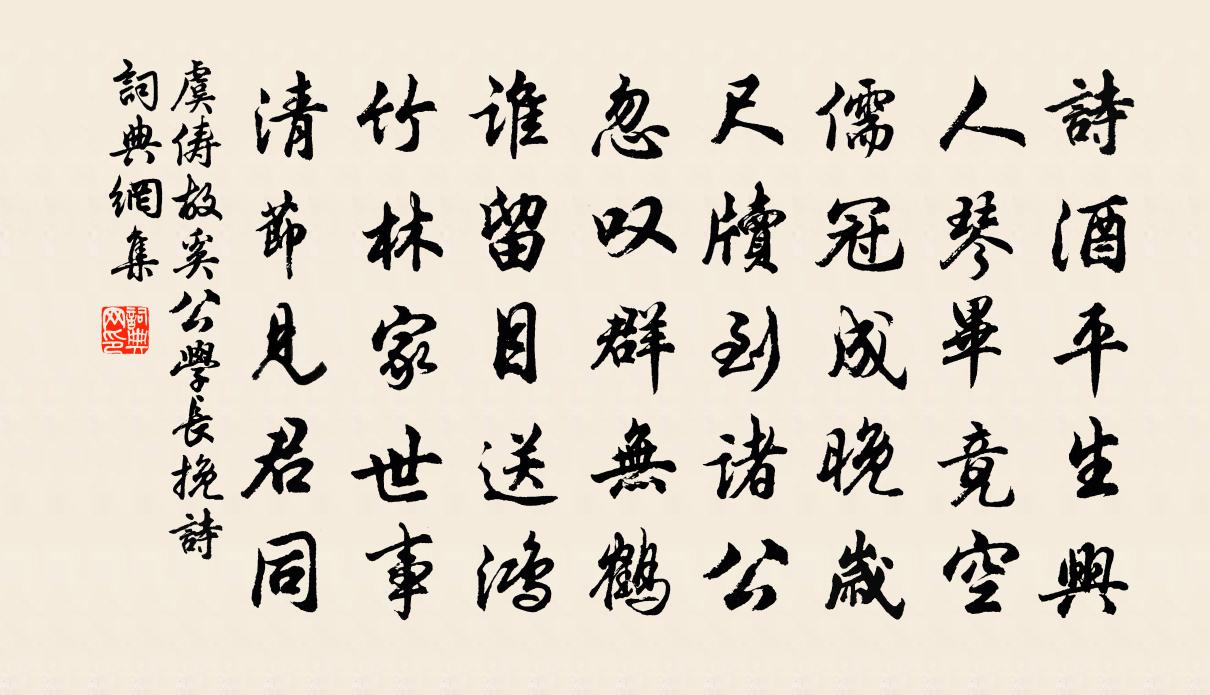 詩酒平生興
人琴畢竟空
儒冠成晚歲
尺牘到诸公
忽叹群無鶴
谁留目送鴻
竹林家世事
清節見君同
虞俦故奚公學長挽詩
詞典網集
詞典网印